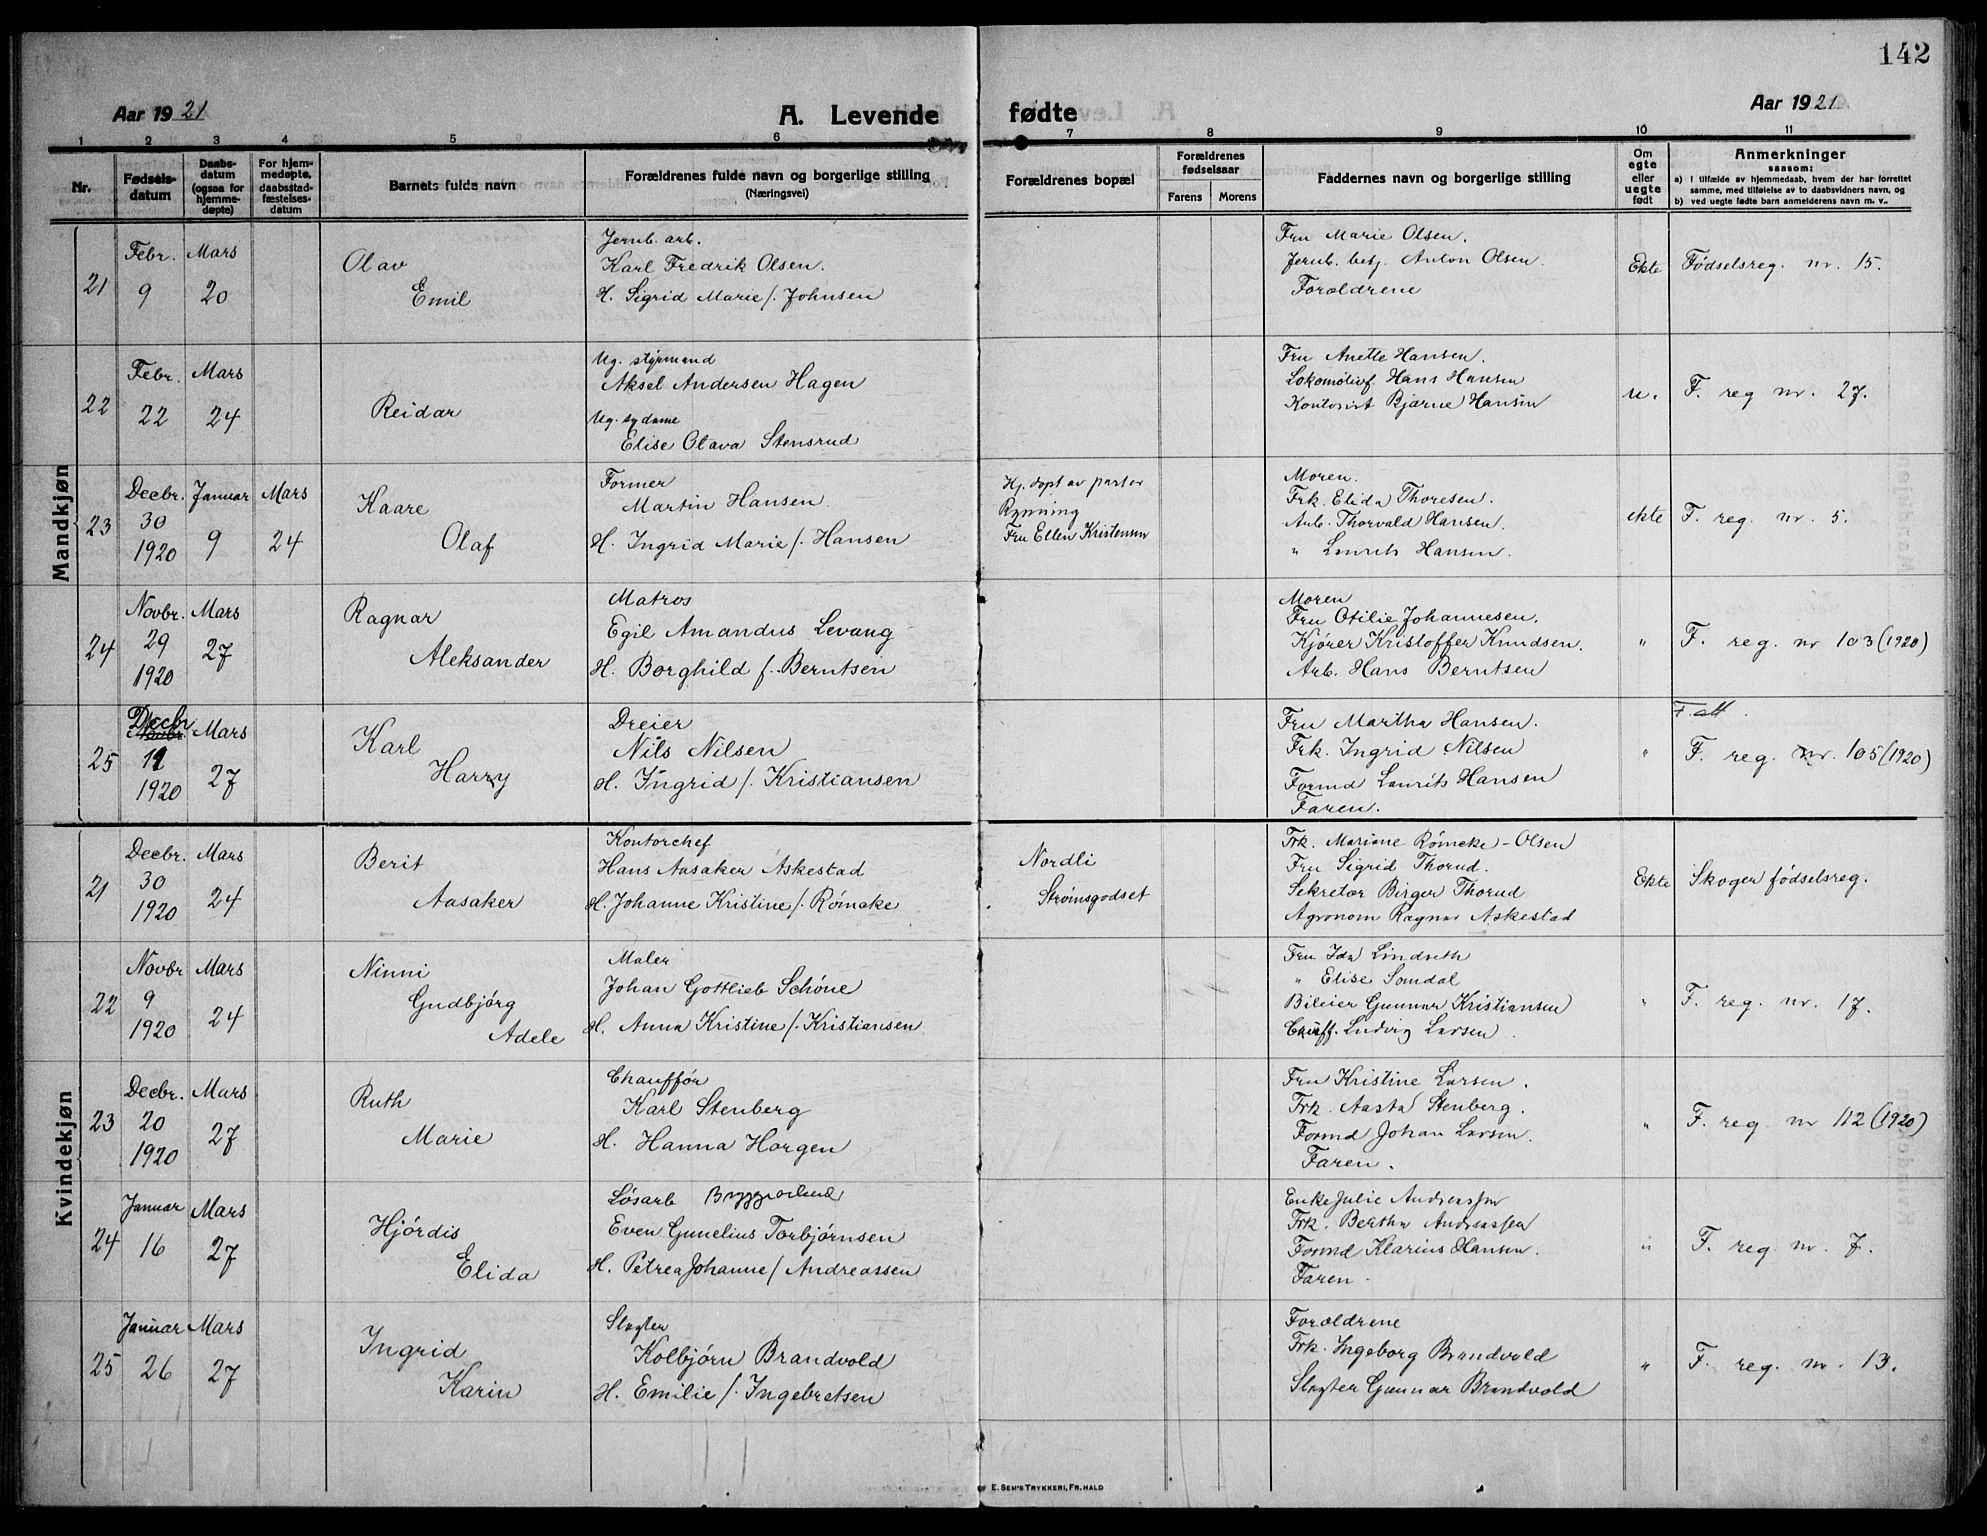 142
Aar 1921
A. Levende
fødte
Aar 1921
1 2 3 4 5 6 7 8 9 10 11
Nr.
Fødsels-
datum
Daabs-
datum
(ogsaa for
hjemme-
døpte)
For hjem-
medøpte,
daabsstad-
fæstelses-
datum
Barnets fulde navn
Forældrenes fulde navn og borgerlige stilling
(Næringsvei)
Forældrenes bopæl
Forældrenes
fødselsaar
Farens Morens
Faddernes navn og borgerlige stilling
Om
egte
eller
uegte
født
Anmerkninger
saasom:
a) I tilfælde av hjemmedaab, hvem der har forrettet
samme, med tilføielse av to daabsvidners navn, og
b) ved uegte fødte barn anmelderens navn m. v..
Mandkjøn
21
Febr.
9
Mars
20
Olav
Emil
Jernb. arb.
Karl Fredrik Olsen.
H. Sigrid Marie f. Johnsen
Fru Marie Olsen.
Jernb. betj. Anton Olsen.
Forældrene
Ekte
Fødselsreg. nr. 15.
22
Febr.
22
Mars
24
Reidar
Ug. styrmand
Aksel Andersen Hagen
Ug. sydame
Elise Olava Stensrud
Fru Anette Hansen.
Lokomotivf. Hans Hansen
Kontorist Bjarne Hansen
u.
F. reg nr. 27.
23
Decbr.
30
1920
Januar
9
Mars
24
Kaare
Olaf
Former
Martin Hansen
H. Ingrid Marie f. Hansen
Hj. døpt av pastor
Rynning
Fru Ellen Kristensen
Moren.
Frk. Elida Thoresen.
Arb. Thorvald Hansen.
" Laurits Hansen.
ekte
F. reg. nr. 5.
24
Novbr.
29
1920
Mars
27
Ragnar
Aleksander
Matros
Egil Amandus Levang
H. Borghild f. Berntsen
Moren
Fru Otilie Johannesen.
Kjører Kristoffer Knudsen.
Arb. Hans Berntsen
"
F. reg. nr 103 (1920)
25
Decbr
1920
Mars
27
Karl
Harry
Dreier
Nils Nilsen
H. Ingrid f. Kristiansen
Fru Martha Hansen.
Frk. Ingrid Nilsen
Formd Laurits Hansen
Faren.
"
F. att.
F. reg. nr. 105 (1920)
Kvindekjøn
21
Decbr.
30
1920
Mars
24
Berit
Aasaker
Kontorchef
Hans Aasaker Askestad
H. Johanne Kristine f. Rømcke
Nordli
Strømsgodset
Frk. Mariane Rømcke-Olsen
Fru Sigrid Thorud.
Sekretær Birger Thorud
Agronom Ragnar Askestad
Ekte
Skoger fødselsreg.
22
Novbr
9
1920
Mars
24
Ninni
Gudbjørg
Adele
Maler
Johan Gottlieb Schöne
H. Anna Kristine f. Kristiansen
Fru Ida Lindseth
" Elise Somdal
Bileier Gunnar Kristiansen
Chauff. Ludvig Larsen.
"
F. reg. nr. 17.
23
Decbr.
20
1920
Mars
27
Ruth
Marie
Chauffør
Karl Stenberg
H. Hanna Horgen
Fru Kristine Larsen.
Frk. Aasta Stenberg.
Formd Johan Larsen.
Faren.
"
F. reg. nr 112 (1920)
24
Januar
16
Mars
27
Hjørdis
Elida
Løsarb Bryggearbeid
Even Gunelius Torbjørnsen
H. Petrea Johanne f Andreassen
Enke Julie Andreassen
Frk. Bertha Andreassen
Formd Klarius Hansen.
Faren.
"
F. reg. nr. 7.
25
Januar
26
Mars
27
Ingrid
Karin
Slagter
Kolbjørn Brandvold
H. Emilie f. Ingebretsen
Forældrene
Frk. Ingeborg Brandvold
Slagter Gunnar Brandvold
"
F. reg. nr. 13.
E. SEM'S TRYKKERI, FR.HALD